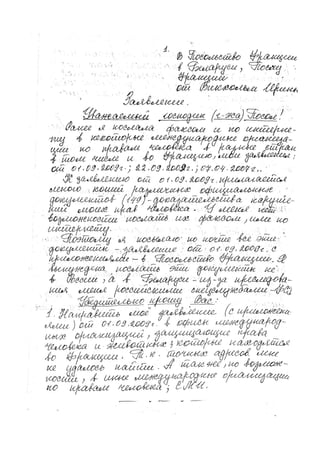 1.
В Посольство Франции
в Беларуси, Послу
Франции
от Ирины
Заявление.
Уважаемый господин (г-жа) Посол!
Ранее я послала факсом и по интерне-
ту в некоторые международные организа-
ции по правам человека в разные страны
в том числе и во Францию, мои заявления:
от 01.09.2009г.; 22.09.2009г.; 07.04.2007г..
К заявлению от 01.09.2009г. прилагается
много копий различных официальных
документов (149)-доказательства наруше-
ний моих прав человека. У меня нет
возможности послать их факсом, или по
интернету.
Поэтому я посылаю по почте все эти
документы - заявление от 01.09.2009г. с
приложениями - в Посольство Франции. Я
вынуждена послать эти документы не
в России, а в Беларуси - из-за преследова-
ния меня российскими спецслужбами
Убедительно прошу Вас:
1. Направить моё заявление (с приложени-
ями) от 01.09.2009г. в офисы международ-
ных организаций, защищающие права
человека и животных; которые находятся
во Франции. Т.к. точных адресов мне
не удалось найти. А также, по возмож-
ности, в иные международные организации
по правам человека; СМИ.